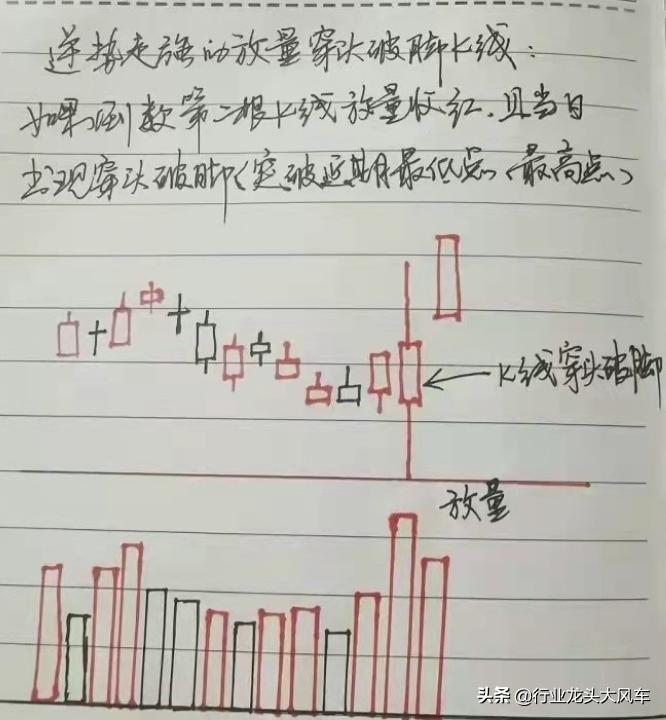 逆势走强的放量穿头破脚K线：
如果倒数第二根K线放量收红，且当日
出现穿头破脚（突破近期最低点、最高点）
K线穿头破脚
放量
头条 @行业龙头大风车